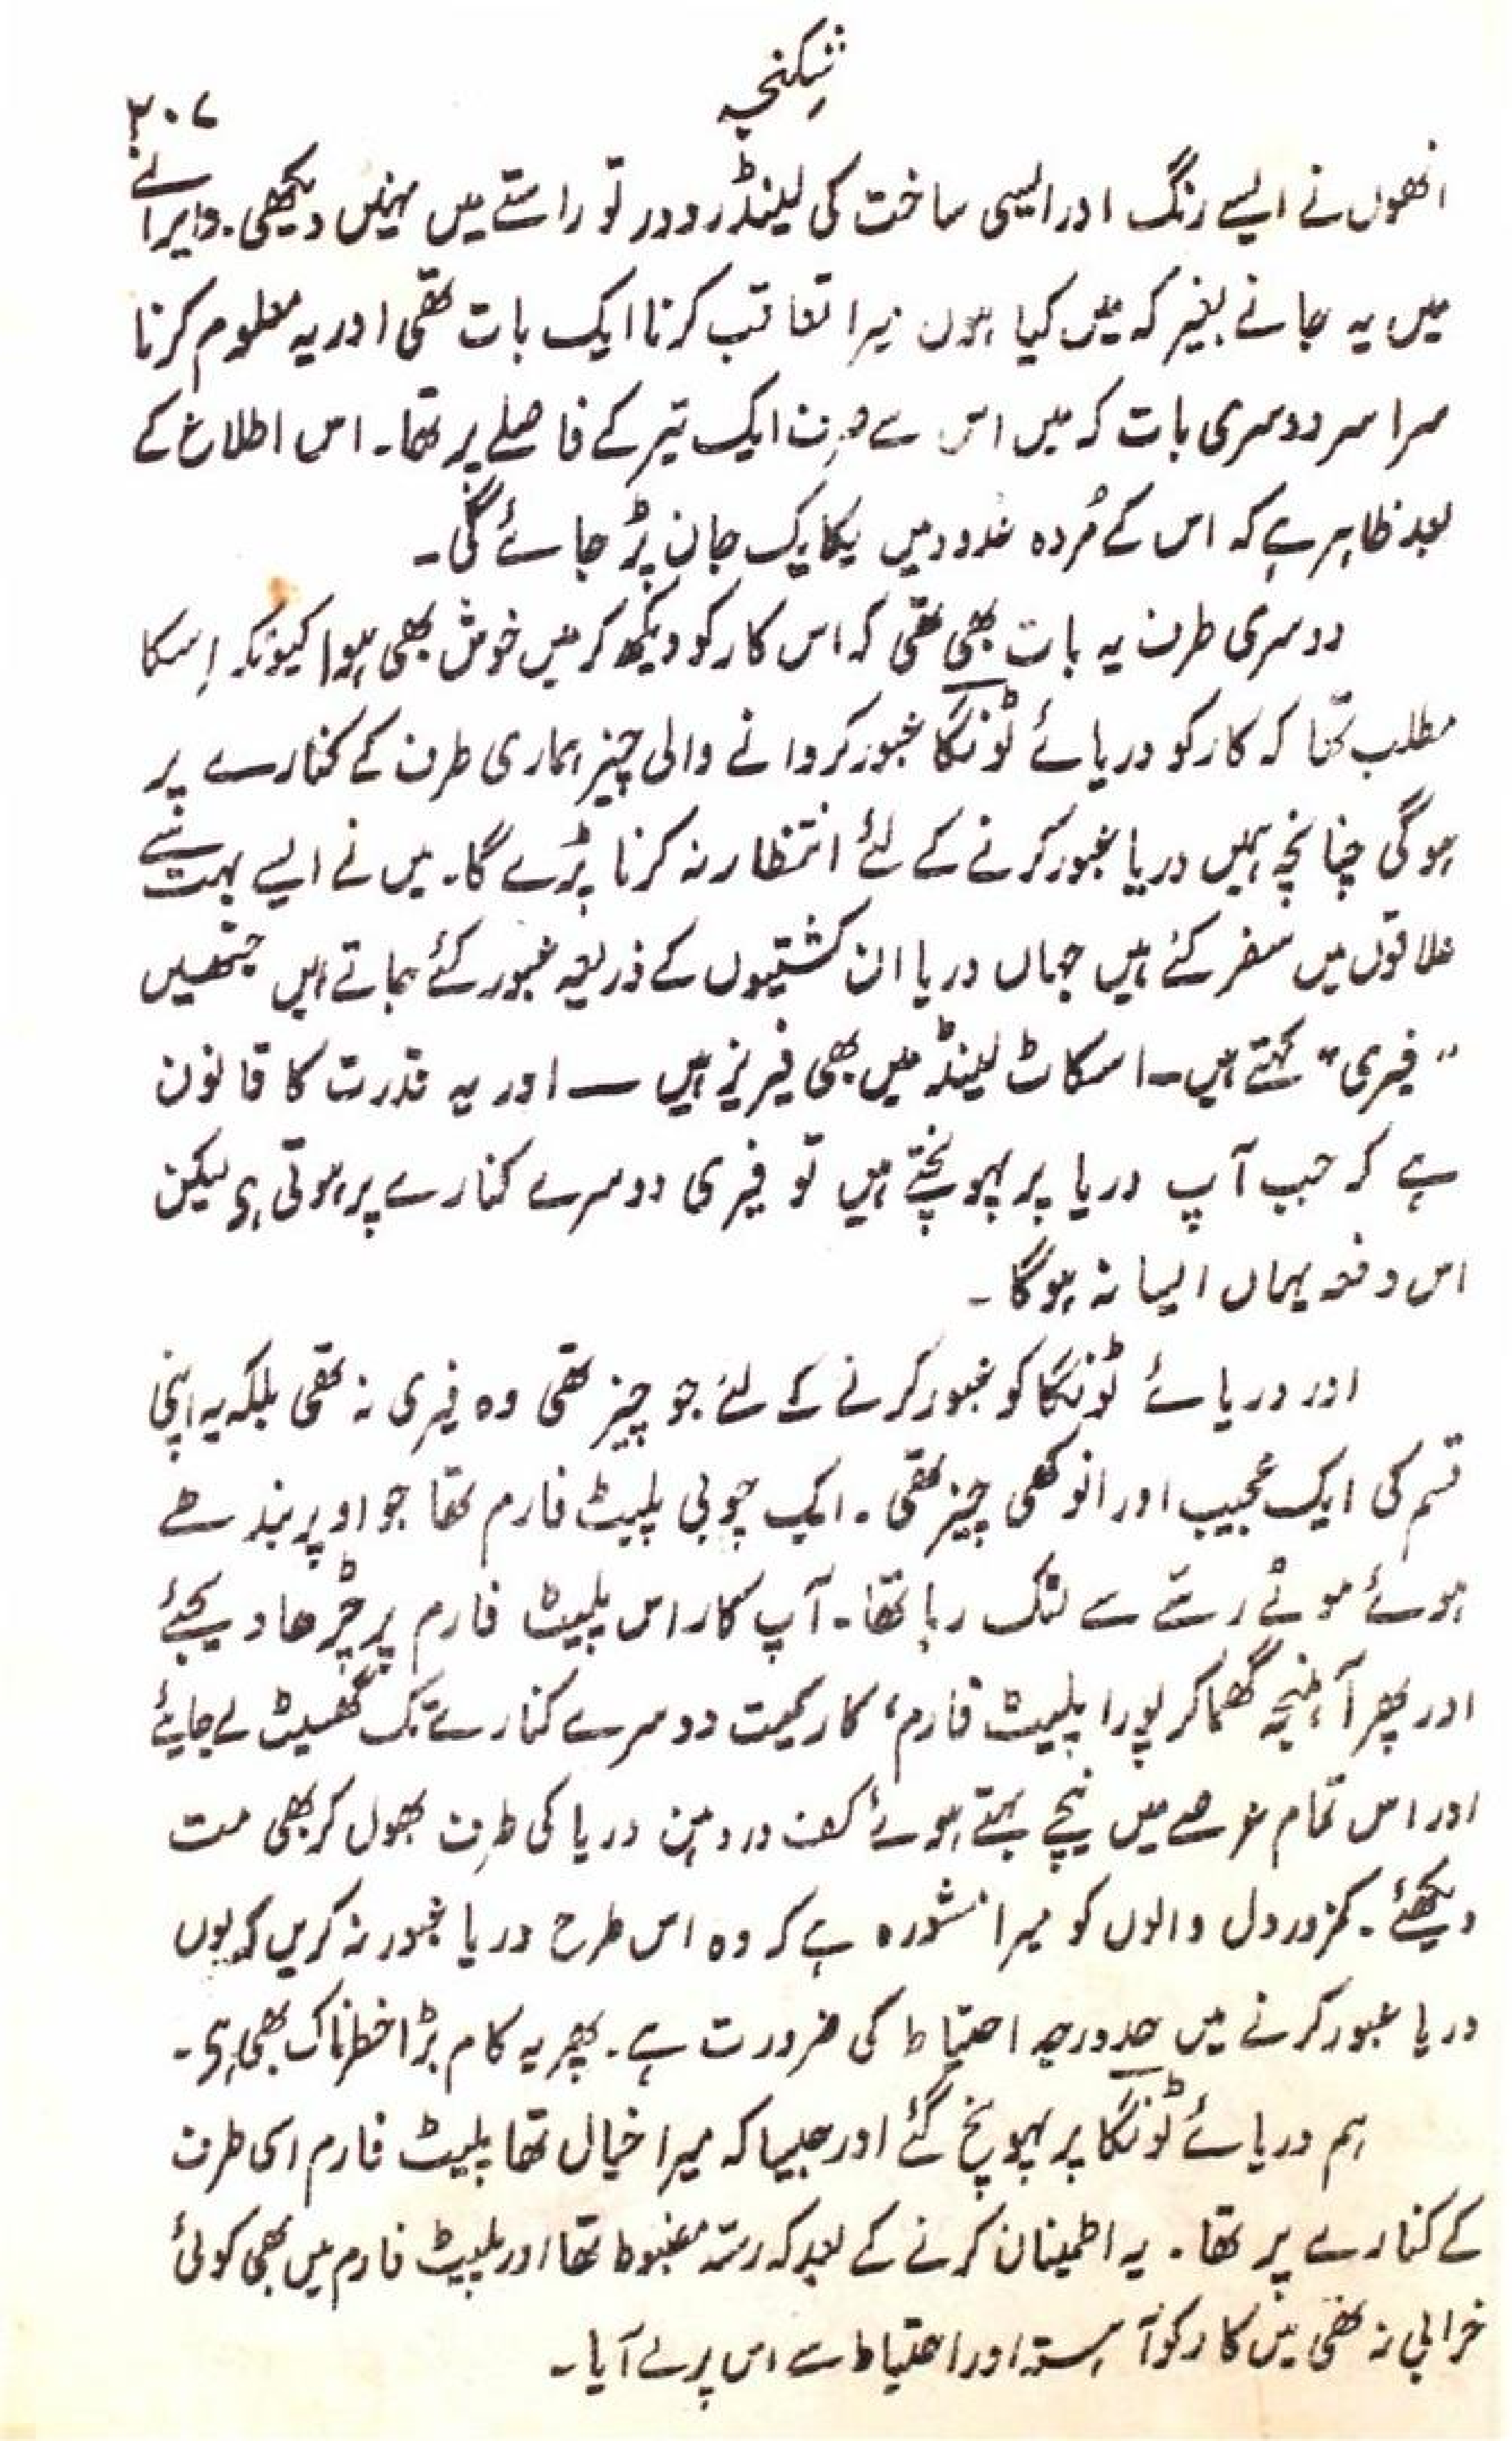 شکنجہ
۳۰۷
انھوں نے ایسے رنگ اور ایسی ساخت کی لینڈ روور تو راستے میں نہیں دیکھی۔ ویرانے
میں یہ جانے بغیر کہ میں کیا ہوں میرا تعاقب کرنا ایک بات تھی اور یہ معلوم کرنا
سراسر دوسری بات کہ میں اس سے صرف ایک تیر کے فاصلے پر تھا۔ اس اطلاع کے
بعد ظاہر ہے کہ اس کے مُردہ غدود میں یکایک جان پڑ جائے گی۔
دوسری طرف یہ بات بھی تھی کہ اس کار کو دیکھ کر میں خوش بھی ہوا کیونکہ اِسکا
مطلب تھا کہ کار کو دریائے ٹونگا عبور کروانے والی چیز ہماری طرف کے کنارے پر
ہوگی چنانچہ ہمیں دریا عبور کرنے کے لئے انتظار نہ کرنا پڑے گا۔ میں نے ایسے بہت سے
علاقوں میں سفر کئے ہیں جہاں دریا ان کشتیوں کے ذریعہ عبور کئے جاتے ہیں جنھیں
"فیری" کہتے ہیں۔ اسکاٹ لینڈ میں بھی فیریز ہیں — اور یہ قدرت کا قانون
ہے کہ جب آپ دریا پر پہونچتے ہیں تو فیری دوسرے کنارے پر ہوتی ہے لیکن
اس دفعہ یہاں ایسا نہ ہوگا۔
اور دریائے ٹونگا کو عبور کرنے کے لئے جو چیز تھی وہ فیری نہ تھی بلکہ یہ اپنی
قسم کی ایک عجیب اور انوکھی چیز تھی۔ ایک چوبی پلیٹ فارم تھا جو اوپر بندھے
ہوئے موٹے رسّے سے لٹک رہا تھا۔ آپ کار اس پلیٹ فارم پر چڑھا دیجئے
اور پھر آہنچہ گھما کر پورا پلیٹ فارم، کار سمیت دوسرے کنارے تک گھسیٹ لے جائیے
اور اس تمام عرصے میں نیچے بہتے ہوئے کف در دہن دریا کی طرف بھول کر بھی مت
دیکھئے۔ کمزور دل والوں کو میرا مشورہ ہے کہ وہ اس طرح دریا عبور نہ کریں کہ یوں
دریا عبور کرنے میں حد درجہ احتیاط کی ضرورت ہے۔ پھر یہ کام بڑا خطرناک بھی ہے۔
ہم دریائے ٹونگا پر پہونچ گئے اور جیسا کہ میرا خیال تھا پلیٹ فارم اسی طرف
کے کنارے پر تھا۔ یہ اطمینان کرنے کے بعد کہ رسّہ مضبوط تھا اور پلیٹ فارم میں بھی کوئی
خرابی نہ تھی میں کار کو آہستہ اور احتیاط سے اس پر لے آیا۔